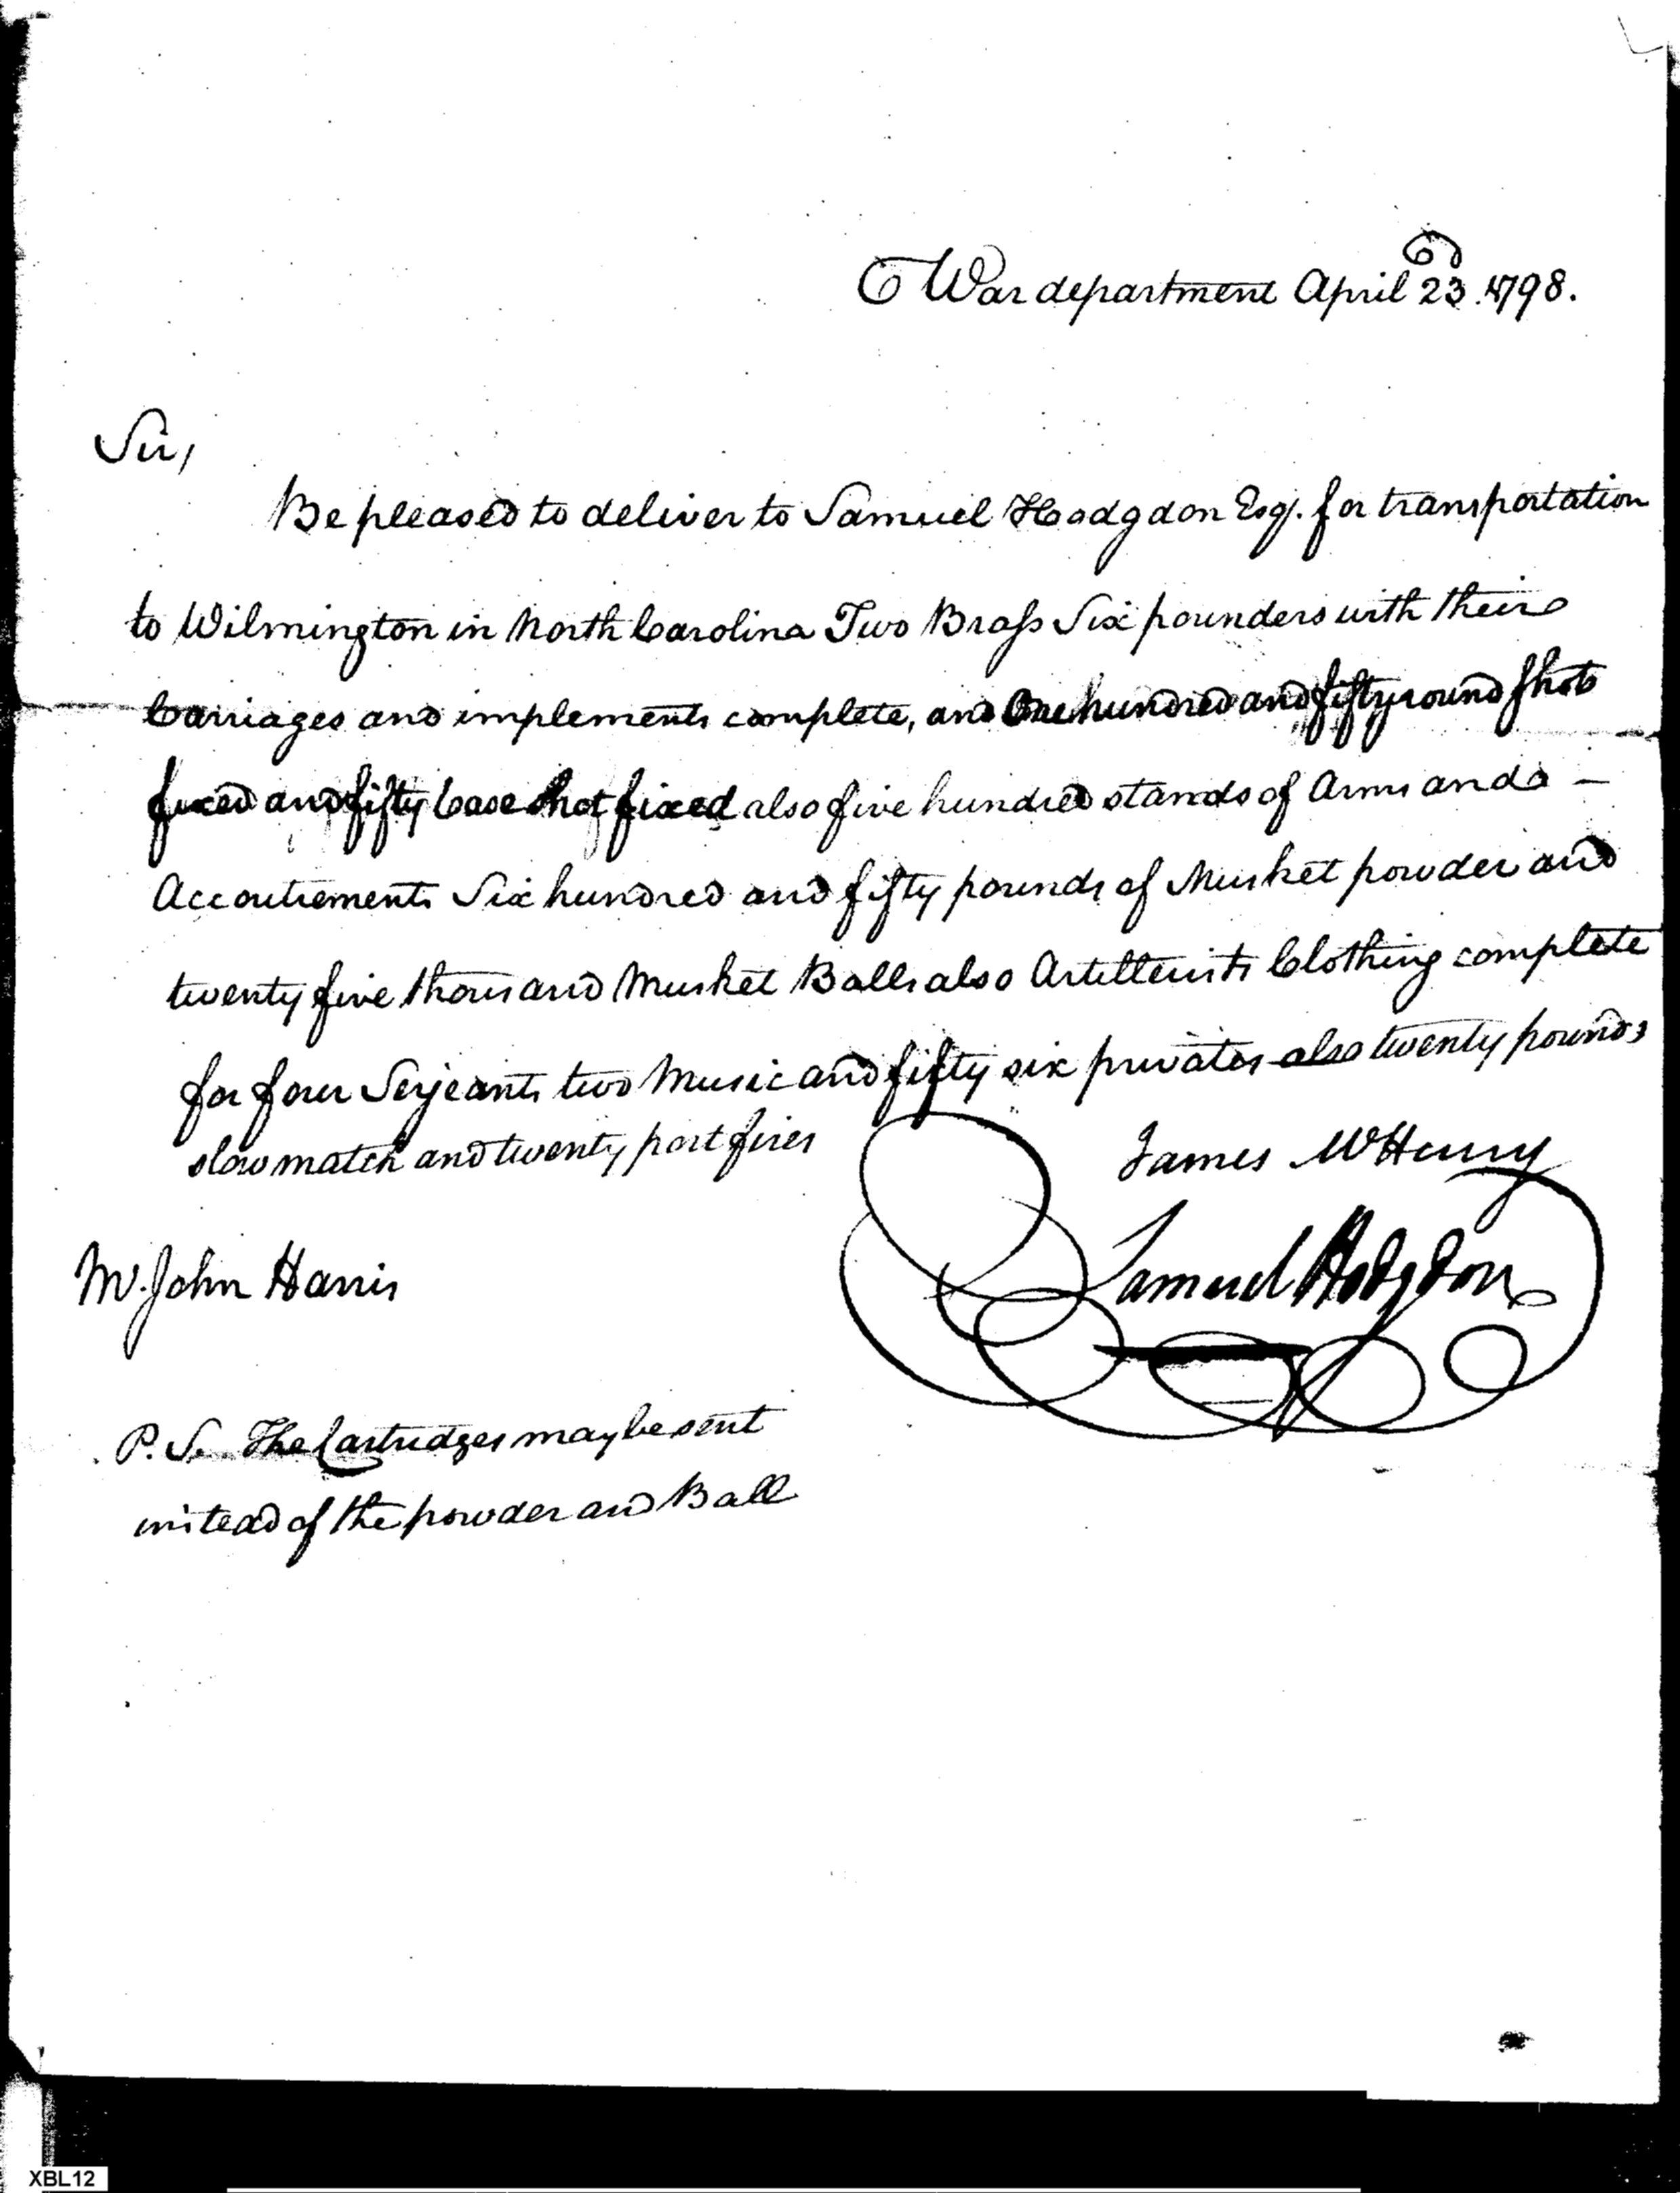 War department April 23d. 1798.
Sir,
Be pleased to deliver to Samuel Hodgdon Esq. for transportation
to Wilmington in North Carolina Two Brass Six pounders with their
Carriages and implements complete, and One hundred and fifty round shot
fixed and fifty Case shot fixed also five hundred stands of Arms and —
Accoutrements Six hundred and fifty pounds of Musket powder and
twenty five thousand Musket Balls also Artillerists Clothing complete
for four Serjeants two Music and fifty six privates also twenty pounds
slow match and twenty port fires
James McHenry
Samuel Hodgdon
Mr. John Harris
P. S. The Cartridges may be sent
instead of the powder and Ball
XBL12